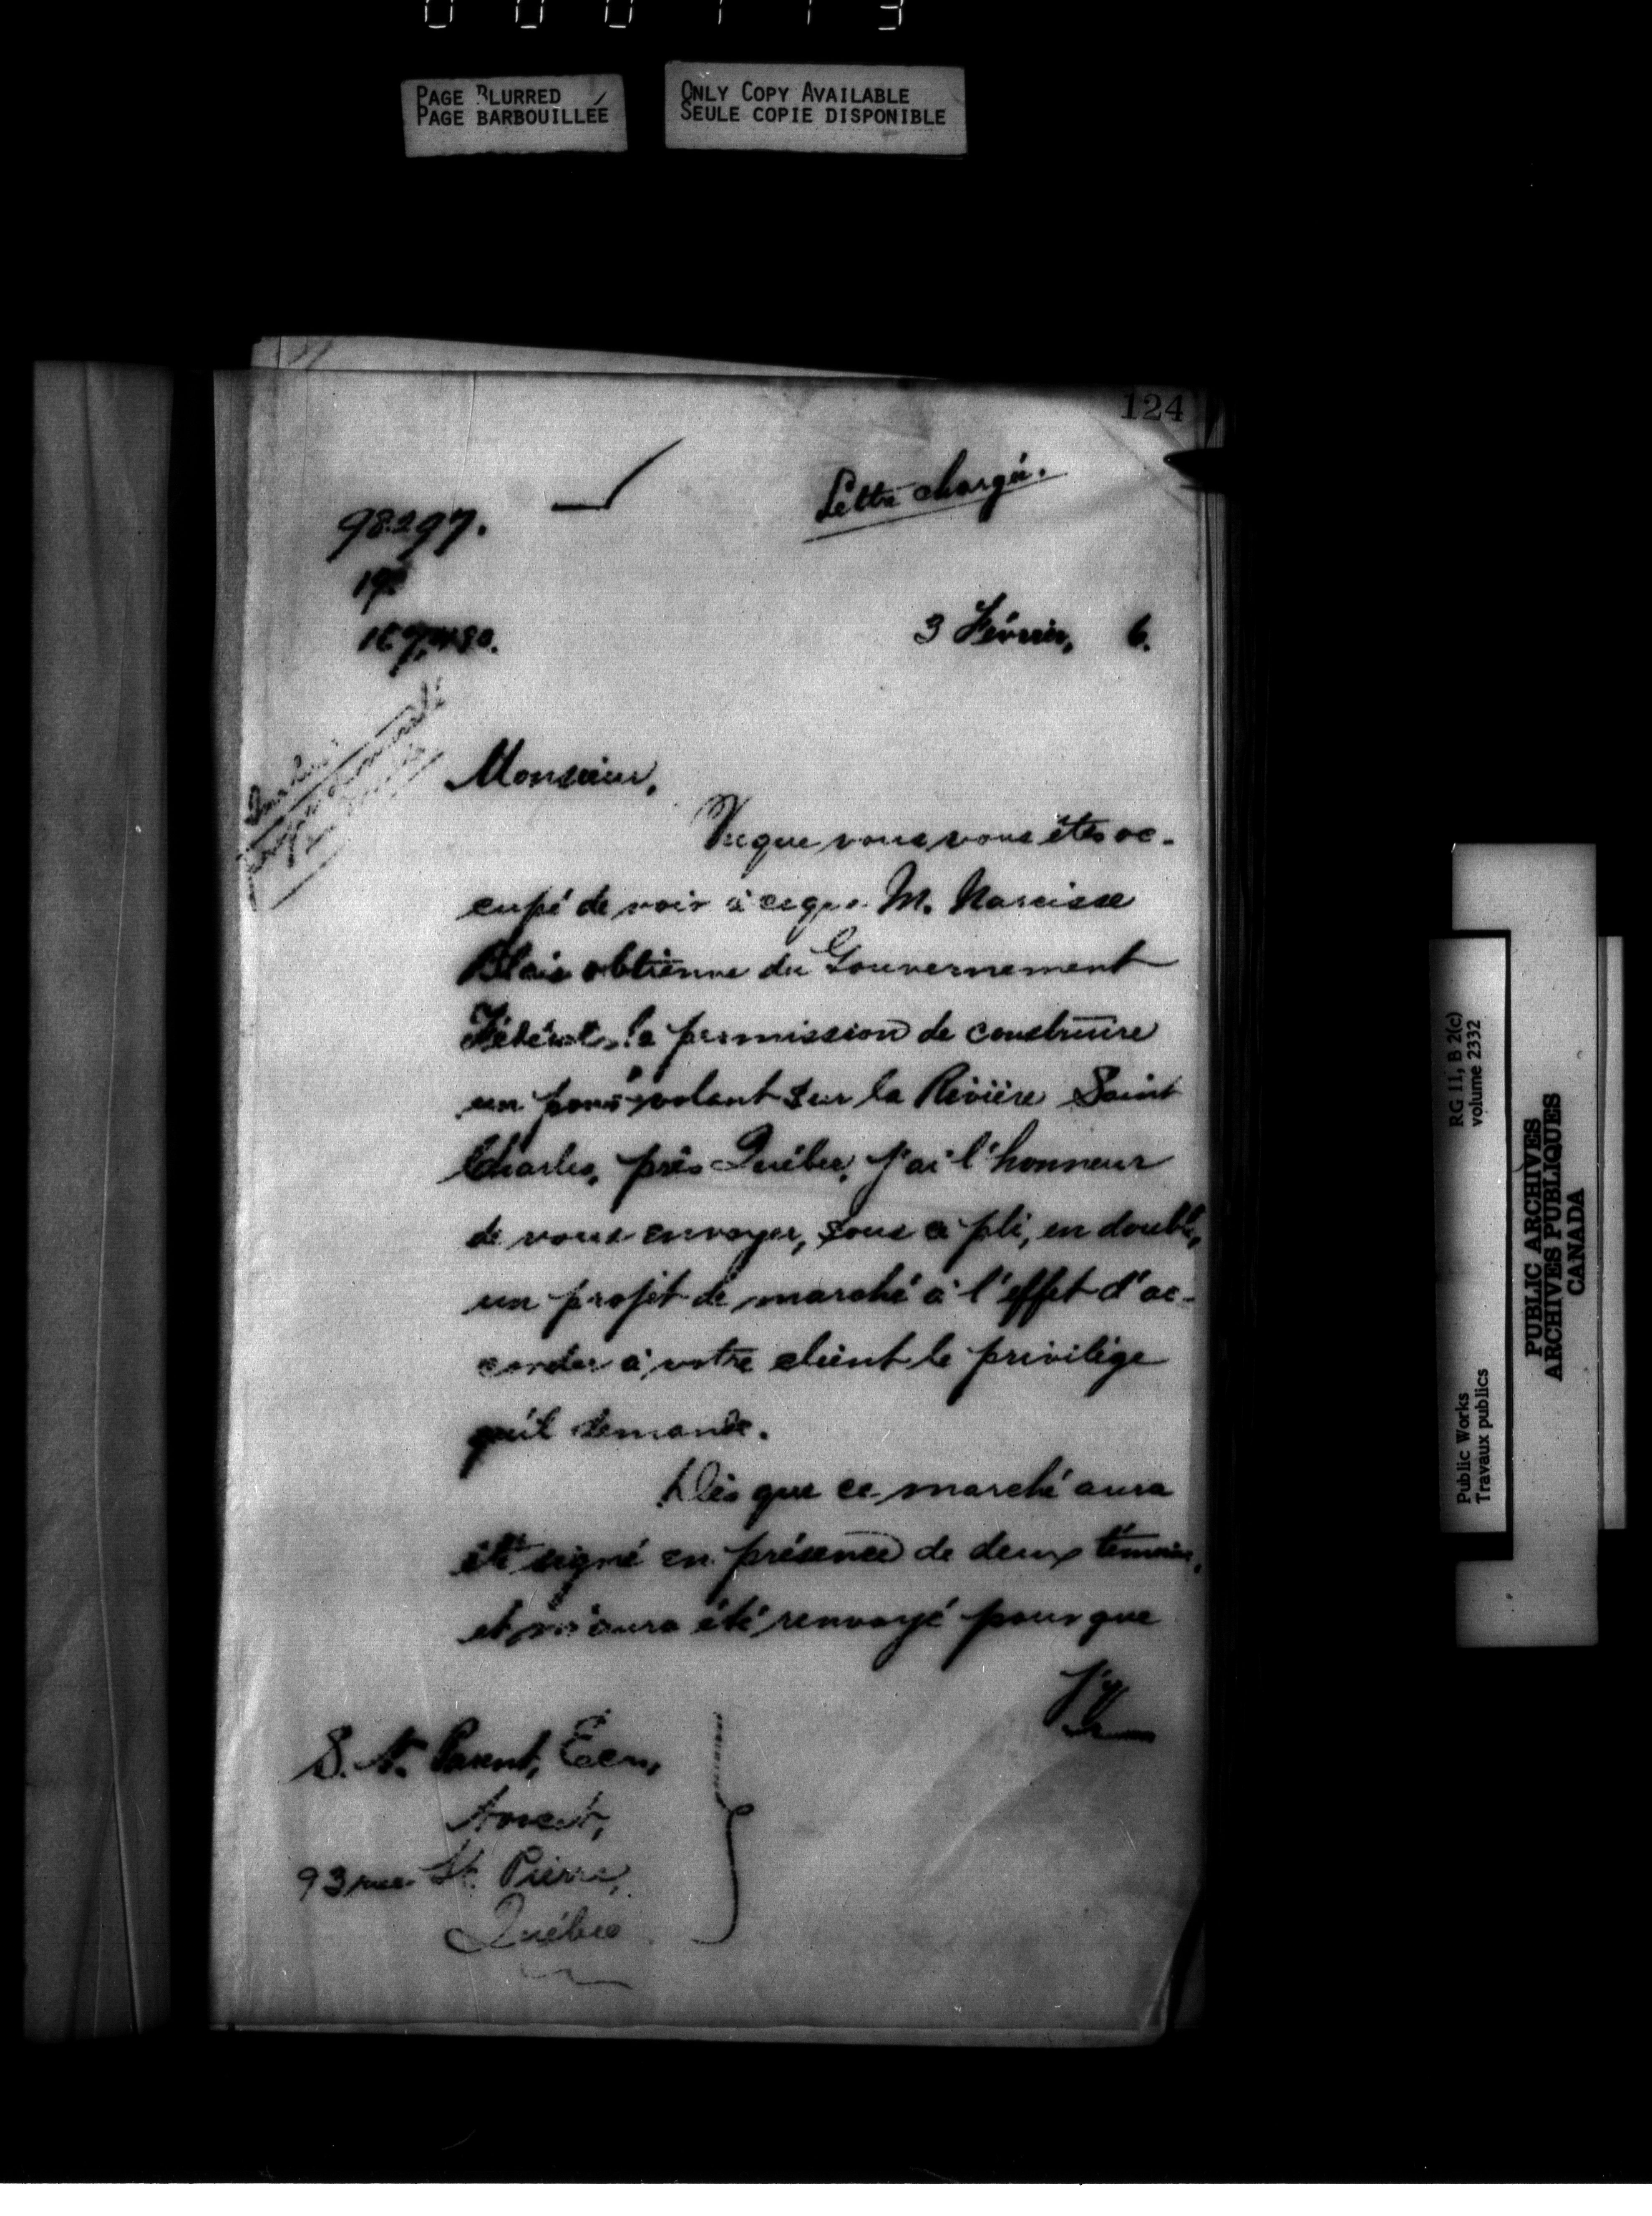 000113
PAGE BLURRED
PAGE BARBOUILLÉE
ONLY COPY AVAILABLE
SEULE COPIE DISPONIBLE
124
Lettre chargée.
98297.
3 Février, 6.
Monsieur,
Vu que vous vous êtes oc-
cupé de voir à ce que M. Narcisse
Blais obtienne du Gouvernement
Fédéral la permission de construire
un pont volant sur la Rivière Saint
Charles, près Québec, j'ai l'honneur
de vous envoyer, sous ce pli, en double,
un projet de marché à l'effet d'ac-
corder à votre client le privilège
qu'il demande.
Dès que ce marché aura
été signé en présence de deux témoins,
et m'aura été renvoyé pour que
j'y
S. N. Parent, Écr,
Avocat,
93 rue St. Pierre,
Québec
RG 11, B 2(c)
volume 2332
Public Works
Travaux publics
PUBLIC ARCHIVES
ARCHIVES PUBLIQUES
CANADA